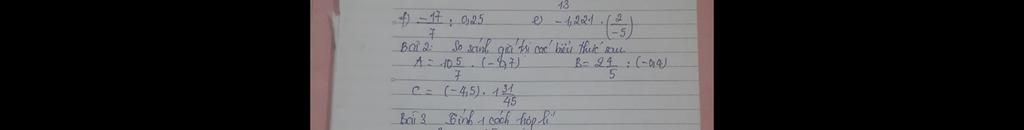 13
f) -17/7 : 0,25 e) -1,221 . (2/-5)
Bài 2: So sánh giá trị các biểu thức sau
A = 10 5/7 . (-1,7) B = 2 4/5 : (-0,4)
C = (-4,5) . 1 31/45
Bài 3 Tính 1 cách hợp lí